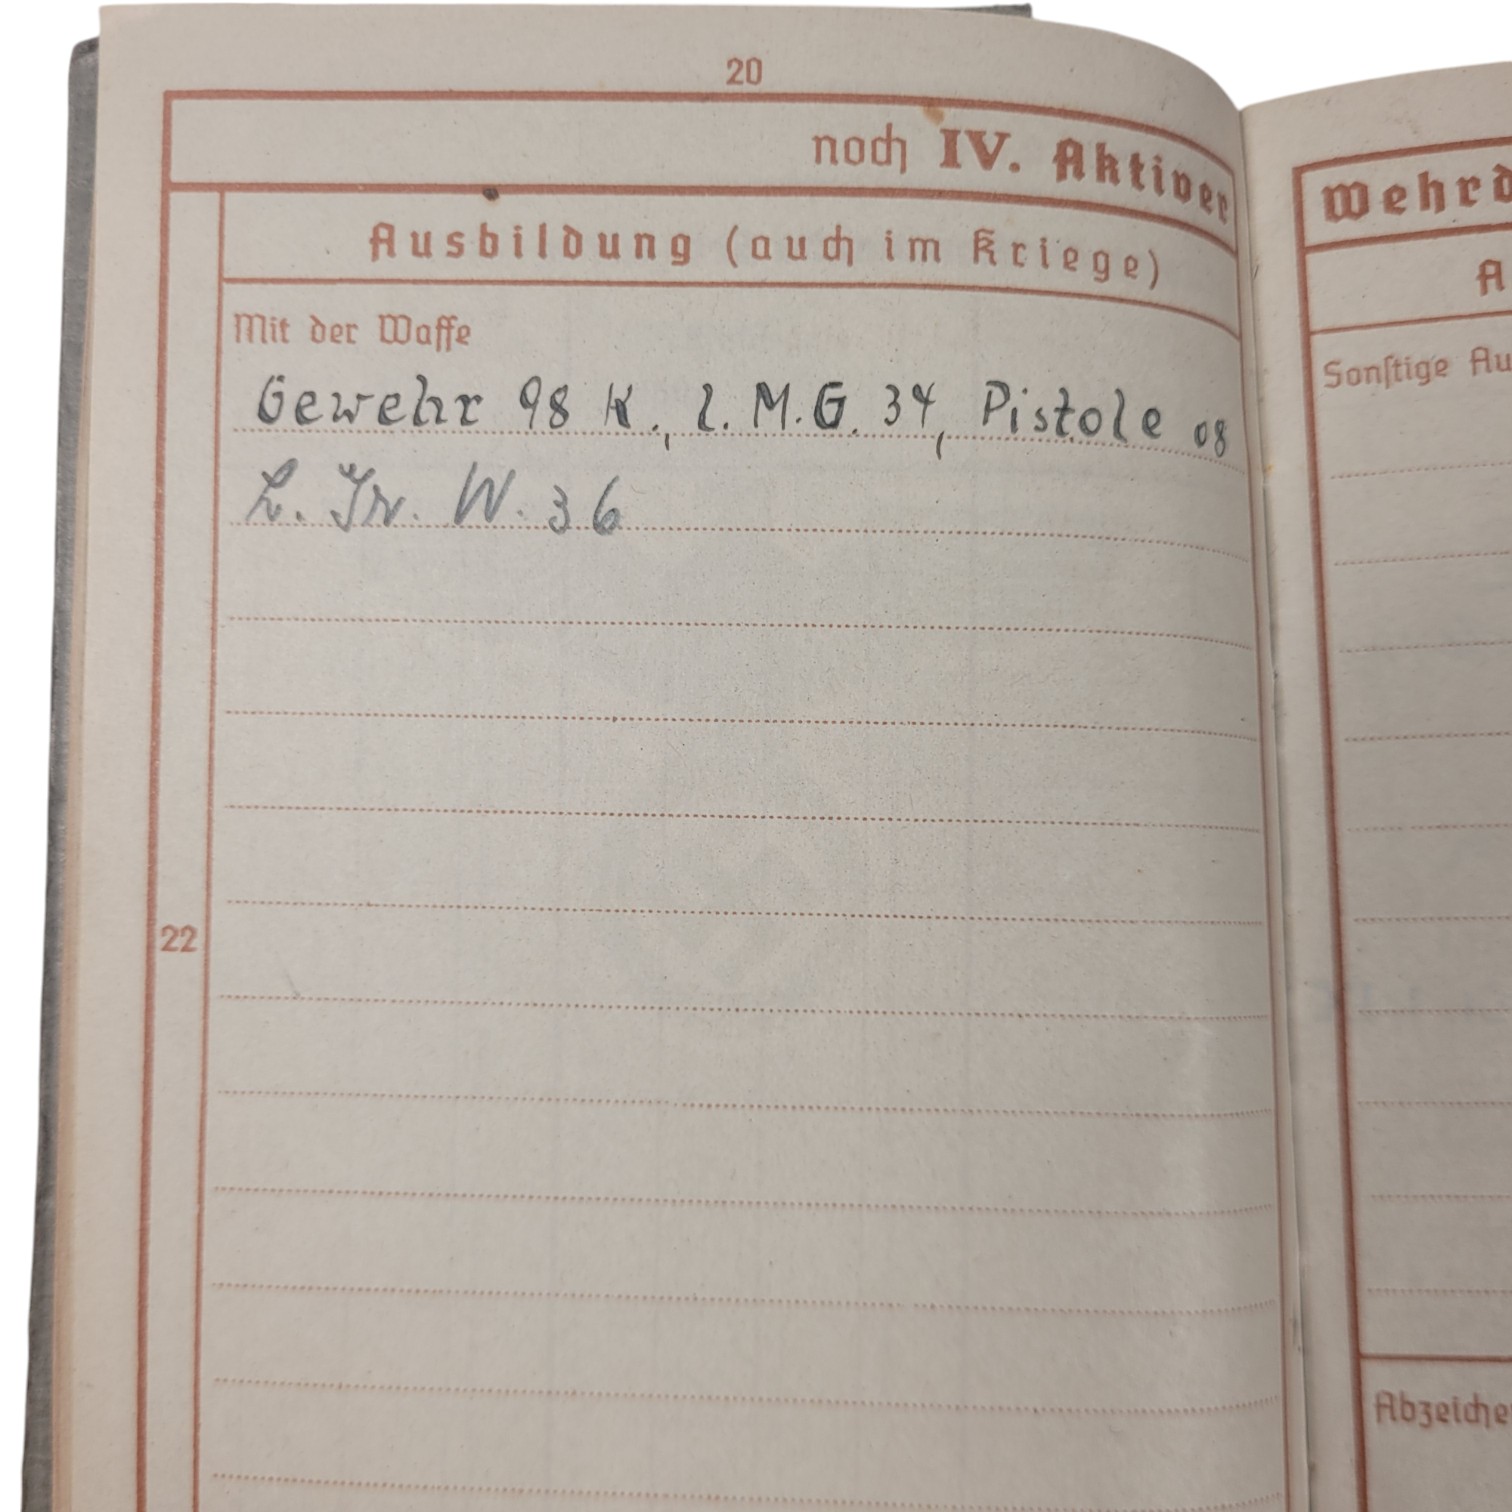 20
noch IV. Aktiver
Ausbildung (auch im Kriege)
Mit der Waffe
Gewehr 98 K., l. M.G. 34, Pistole 08
L. Gr. W. 36
22
Wehrd
A
Sonstige Au
Abzeichen